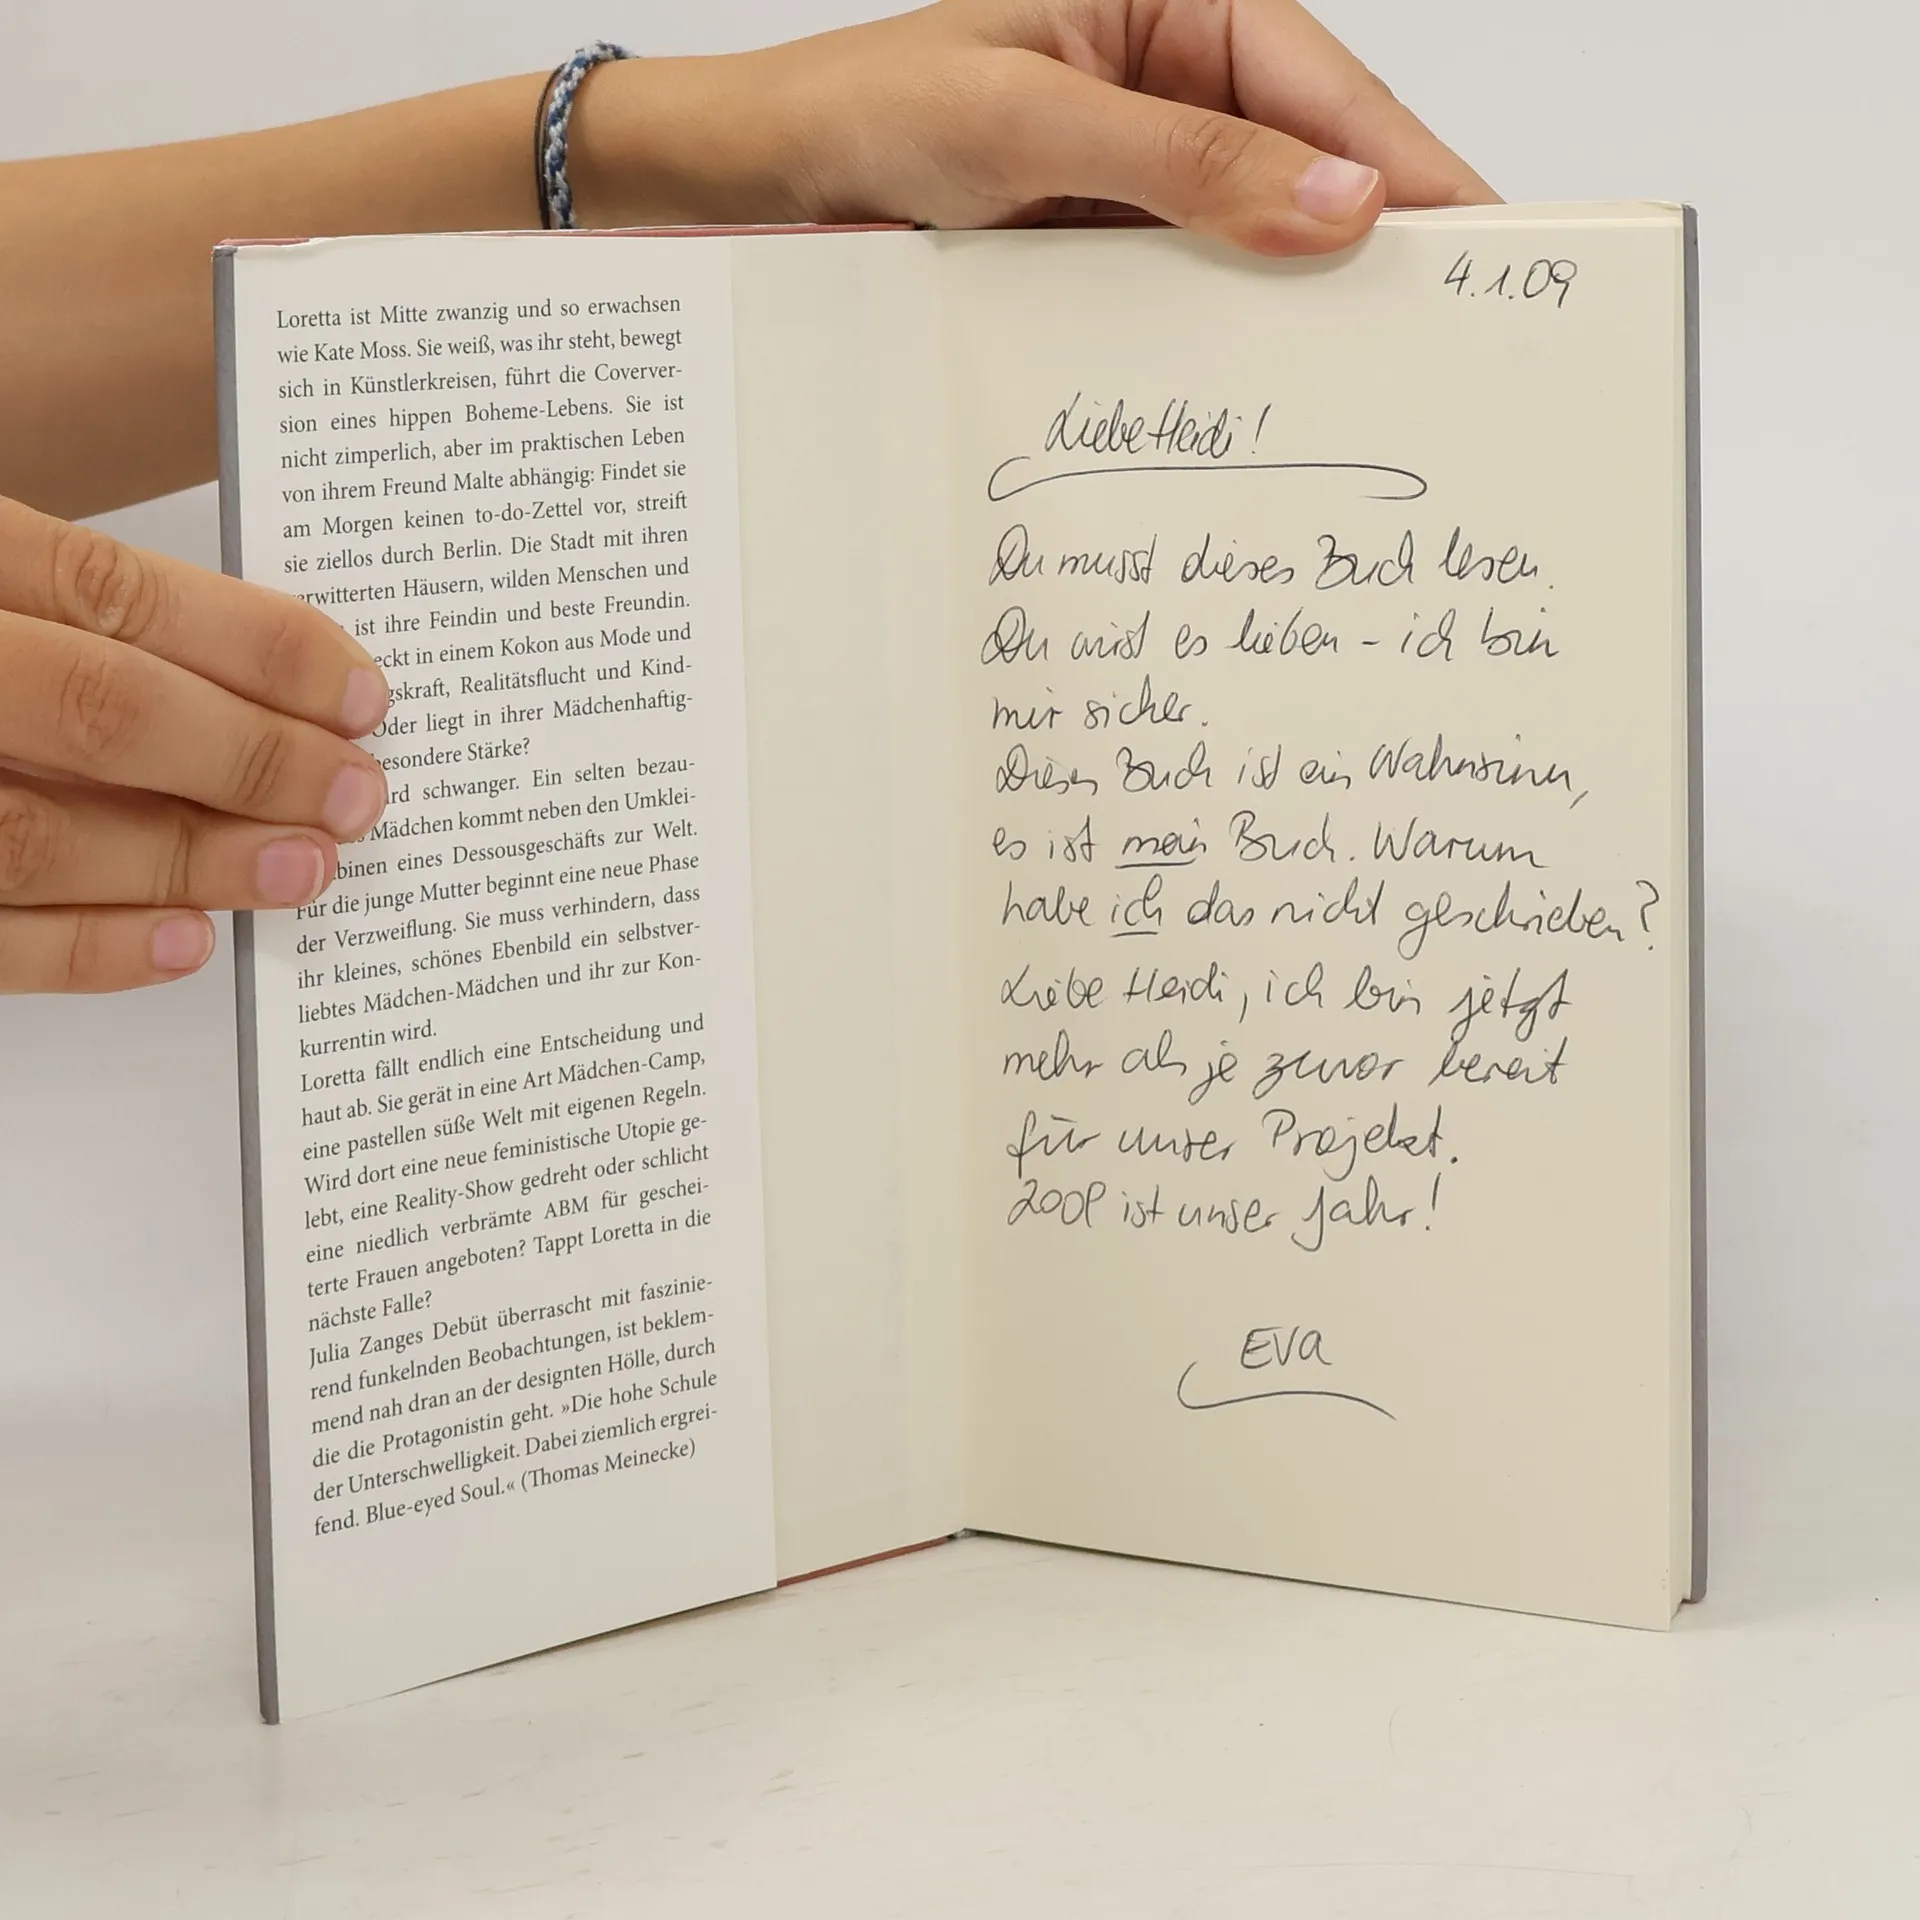 Loretta ist Mitte zwanzig und so erwachsen
wie Kate Moss. Sie weiß, was ihr steht, bewegt
sich in Künstlerkreisen, führt die Coverver-
sion eines hippen Boheme-Lebens. Sie ist
nicht zimperlich, aber im praktischen Leben
von ihrem Freund Malte abhängig: Findet sie
am Morgen keinen to-do-Zettel vor, streift
sie ziellos durch Berlin. Die Stadt mit ihren
erwitterten Häusern, wilden Menschen und
ist ihre Feindin und beste Freundin.
eckt in einem Kokon aus Mode und
gskraft, Realitätsflucht und Kind-
Oder liegt in ihrer Mädchenhaftig-
besondere Stärke?
ird schwanger. Ein selten bezau-
Mädchen kommt neben den Umklei-
binen eines Dessousgeschäfts zur Welt.
Für die junge Mutter beginnt eine neue Phase
der Verzweiflung. Sie muss verhindern, dass
ihr kleines, schönes Ebenbild ein selbstver-
liebtes Mädchen-Mädchen und ihr zur Kon-
kurrentin wird.
Loretta fällt endlich eine Entscheidung und
haut ab. Sie gerät in eine Art Mädchen-Camp,
eine pastellen süße Welt mit eigenen Regeln.
Wird dort eine neue feministische Utopie ge-
lebt, eine Reality-Show gedreht oder schlicht
eine niedlich verbrämte ABM für geschei-
terte Frauen angeboten? Tappt Loretta in die
nächste Falle?
Julia Zanges Debüt überrascht mit faszinie-
rend funkelnden Beobachtungen, ist beklem-
mend nah dran an der designten Hölle, durch
die die Protagonistin geht. »Die hohe Schule
der Unterschwelligkeit. Dabei ziemlich ergrei-
fend. Blue-eyed Soul.« (Thomas Meinecke)
4.1.09
Liebe Heidi!
Du musst dieses Buch lesen.
Du wirst es lieben – ich bin
mir sicher.
Dieses Buch ist ein Wahnsinn,
es ist mein Buch. Warum
habe ich das nicht geschrieben?
Liebe Heidi, ich bin jetzt
mehr als je zuvor bereit
für unser Projekt.
2009 ist unser Jahr!
EVA